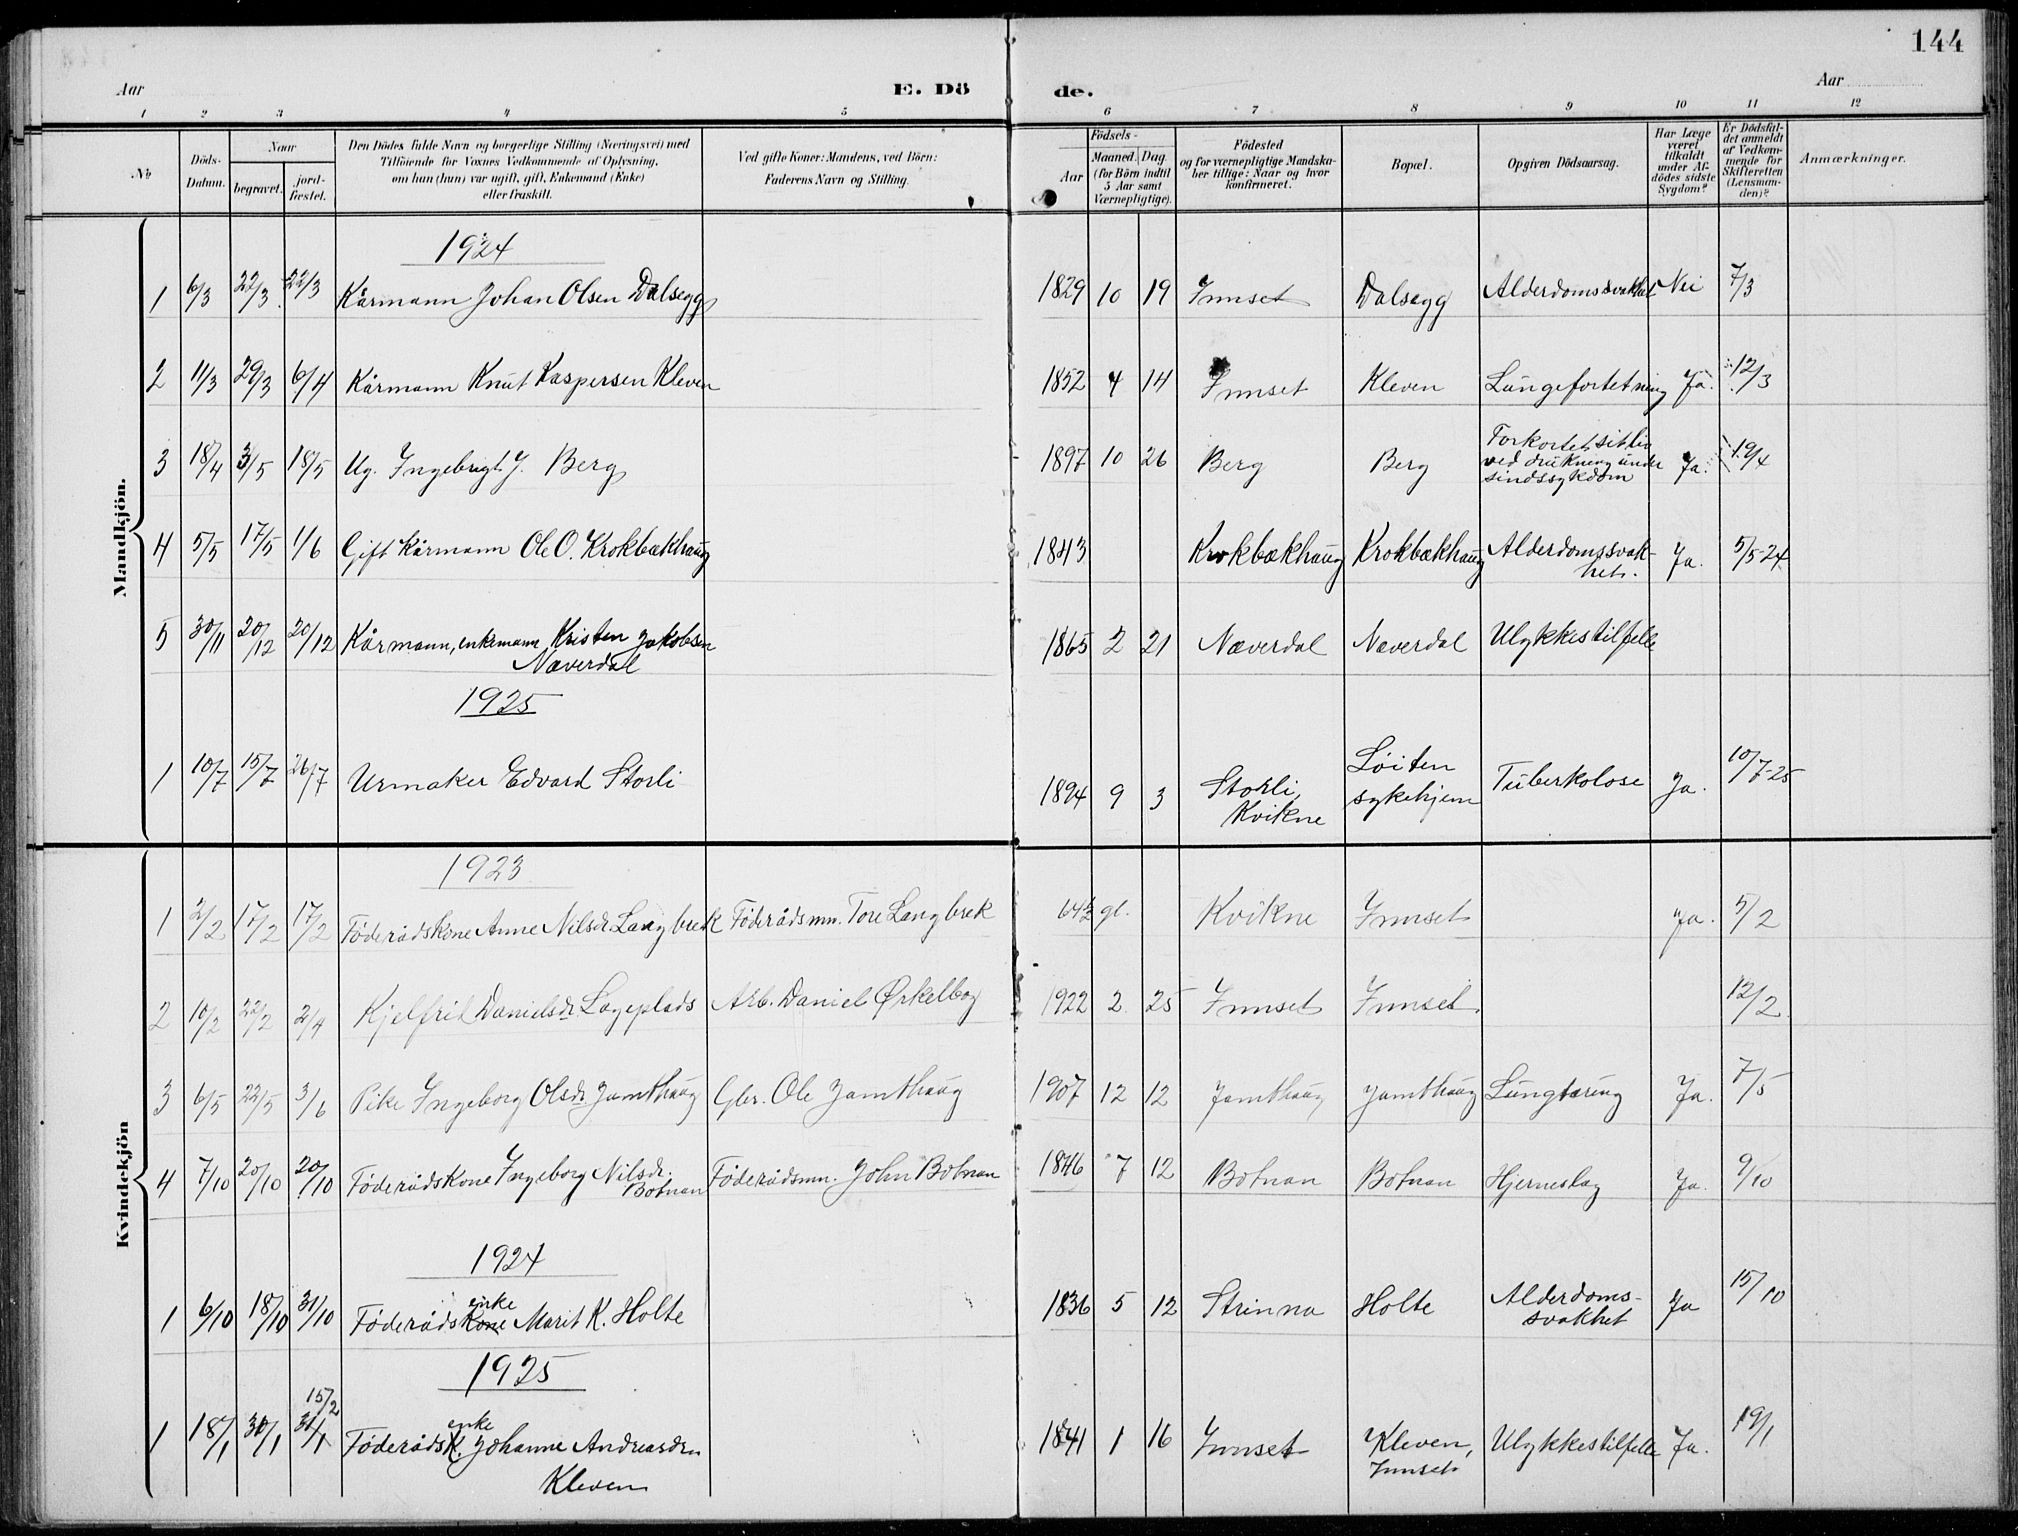 144
Aar
E. Dö
de.
Aar
1 2 3 4 5 6 7 8 9 10 11 12
No
Döds-
Datum.
Naar
begravet.
jord-
fæstet.
Den Dödes fulde Navn og borgerlige Stilling (Næringsvei) med
Tilföiende for Voxnes Vedkommende af Oplysning,
om han (hun) var ugift, gift, Enkemand (Enke)
eller fraskilt.
Ved gifte Koner: Mandens, ved Börn:
Faderens Navn og Stilling.
Födsels-
Aar
Maaned. Dag
(for Börn indtil
5 Aar samt
Værnepligtige).
Födested
og for værnepligtige Mandska-
ber tillige: Naar og hvor
konfirmeret.
Bopæl.
Opgiven Dödsaarsag.
Har Læge
været
tilkaldt
under Af-
dödes sidste
Sygdom?
Er Dödsfal-
det anmeldt
af Vedkom-
mende for
Skifteretten
(Lensman-
den)?
Anmærkninger.
Mandkjön.
1924
1 6/3 22/3 22/3 Kårmann Johan Olsen Dalsegg 1829 10 19 Innset Dalsegg Alderdomssvakhet Nei 7/3
2 11/3 29/3 6/4 Kårmann Knut Kaspersen Kleven 1852 4 14 Innset Kleven Lungefortetning Ja. 12/3
3 18/4 3/5 18/5 Ug. Ingebrigt J. Berg 1897 10 26 Berg Berg Forkortet sit liv
ved drukning under
sindssykdom Ja. 19/4
4 5/5 17/5 1/6 Gift Kårmann Ole O. Krokbækhaug 1843 Krokbækhaug Krokbækhaug Alderdomssvak-
het. Ja. 5/5-24
5 30/11 20/12 20/12 Kårmann, enkemann, Kristen Jakobsen
Næverdal 1865 2 21 Næverdal Næverdal Ulykkestilfelle
1925
1 10/7 15/7 26/7 Urmaker Edvard Storli 1894 9 3 Storli,
Kvikne Löiten
sykehjem Tuberkolose Ja. 10/7-25
Kvindekjön
1923
1 2/2 17/2 17/2 Föderådskone Anne Nilsd. Langbrek Föderådsmn. Tore Langbrek 64½ gl. Kvikne Innset Ja. 5/2
2 10/2 22/2 2/4 Kjelfrid Danielsd. Lageplads Arb. Daniel Ørkelbog 1922 2 25 Innset Innset 12/2
3 6/5 22/5 3/6 Pike Ingeborg Olsd. Jamthaug Gbr. Ole Jamthaug 1907 12 12 Jamthaug Jamthaug Lungtæring Ja. 7/5
4 7/10 20/10 20/10 Föderådskone Ingeborg Nilsd.
Botnan Föderådsmn. John Botnan 1846 7 12 Botnan Botnan Hjerneslag Ja. 9/10
1924
1 6/10 18/10 31/10 Föderådskone enke Marit K. Holte 1836 5 12 Strinna Holte Alderdoms-
svakhet Ja 15/10
1925
15/2
1 18/1 30/1 31/1 Föderådsk. enke Johanne Andreasdn
Kleven 1841 1 16 Innset Kleven,
Innset Ulykkestilfelle Ja. 19/1